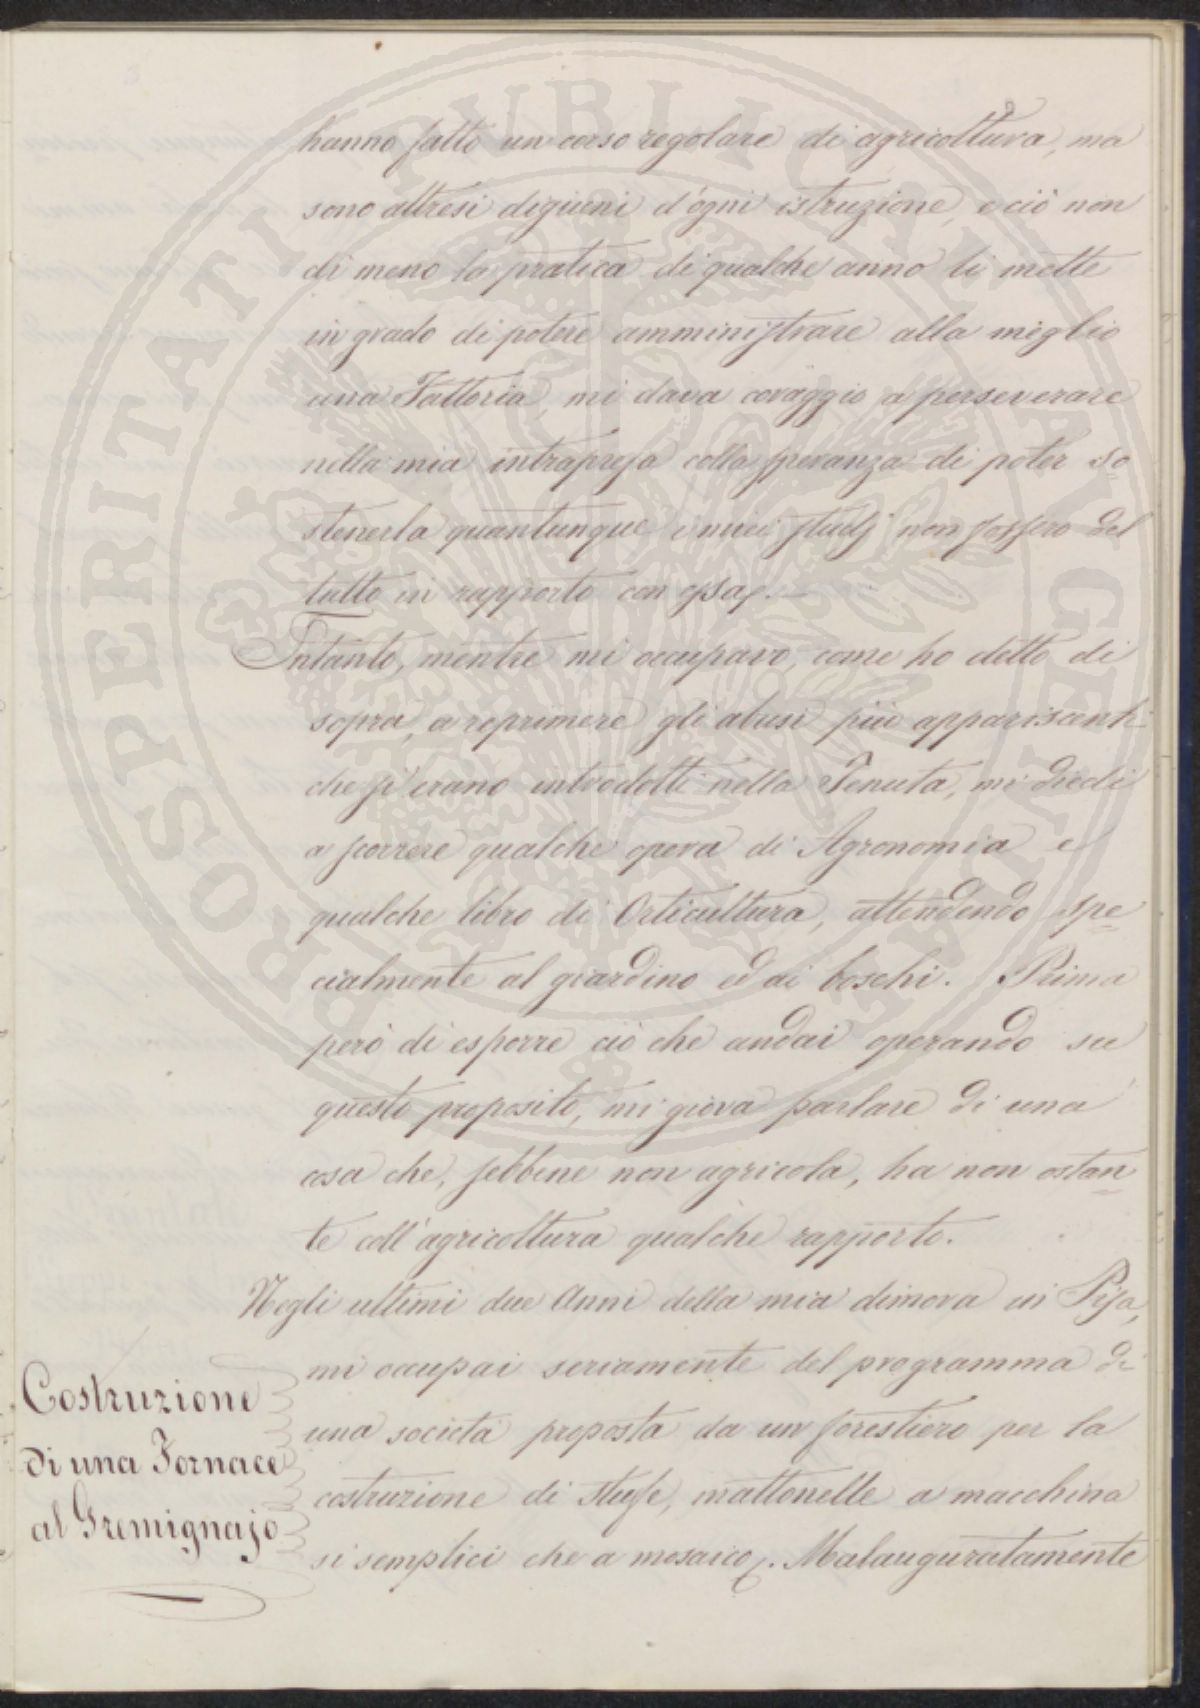 hanno fatto un corso regolare di agricoltura, ma
sono altresì digiuni d'ogni istruzione, e ciò non
di meno la pratica di qualche anno li mette
in grado di potere amministrare alla meglio
una Fattoria, mi dava coraggio a perseverare
nella mia intrapresa colla speranza di poter so
stenerla quantunque i miei studj non fossero del
tutto in rapporto con essa.
Intanto, mentre mi occupavo, come ho detto di
sopra, a reprimere gli abusi più appariscenti
che si erano introdotti nella Tenuta, mi diedi
a scorrere qualche opera di Agronomia e
qualche libro di Orticultura, attendendo spe
cialmente al giardino ed ai boschi. Prima
però di esporre ciò che andai operando su
questo proposito, mi giova parlare di una
cosa che, sebbene non agricola, ha non ostan
te coll'agricoltura qualche rapporto.
Negli ultimi due Anni della mia dimora in Pisa,
mi occupai seriamente del programma di
una società proposta da un forestiero per la
costruzione di stufe, mattonelle a macchina
si semplici che a mosaico. Malauguratamente
Costruzione
di una Fornace
al Gremignajo
PROSPERITATI PVBLICAE AVGENDAE